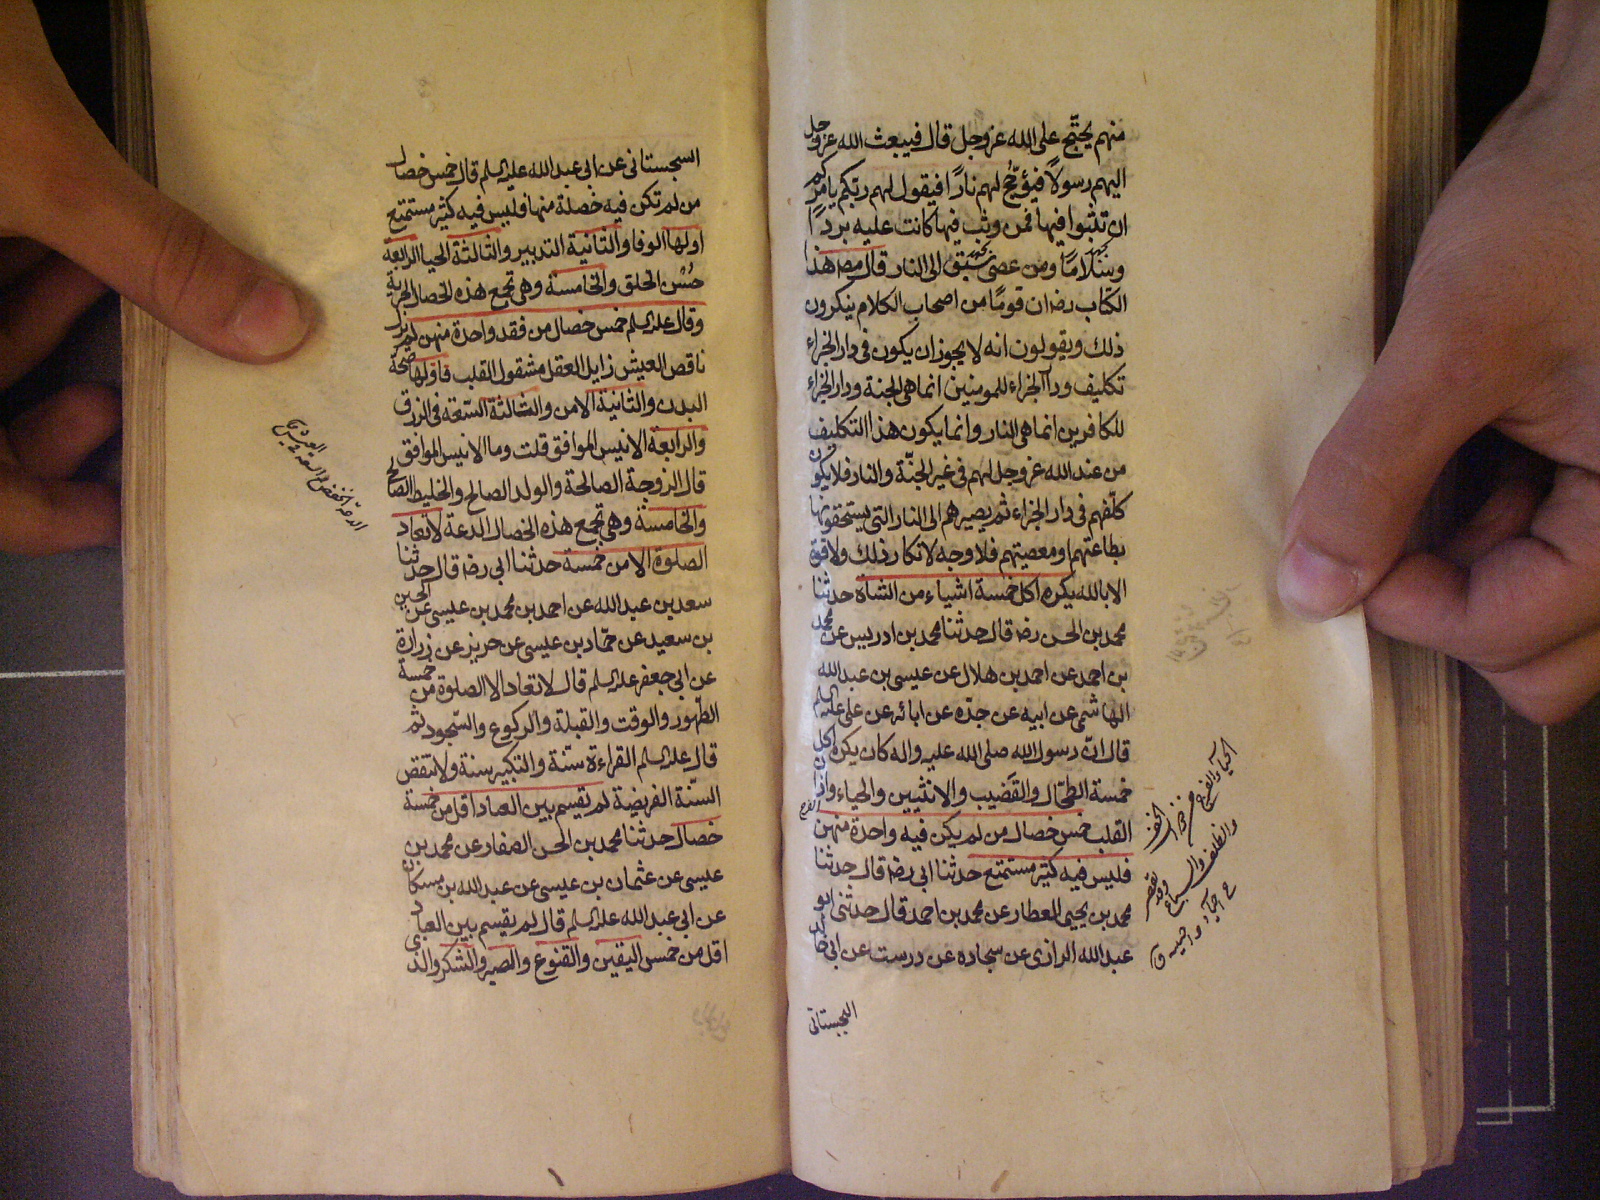 منهم يحتج على الله عز وجل قال فيبعث الله عز وجل
اليهم رسولاً فيؤجج لهم نارًا فيقول لهم ربكم يامركم
ان تثبوا فيها فمن وثب فيها كانت عليه بردًا
وسلامًا ومن عصى سيق الى النار قال مص هذا
الكتاب رضه ان قومًا من اصحاب الكلام ينكرون
ذلك ويقولون انه لا يجوز ان يكون في دار الجزاء
تكليف ودار الجزاء للمومنين انما هى الجنة ودار الجزاء
للكافرين انما هى النار وانما يكون هذا التكليف
من عند الله عز وجل لهم فى غير الجنّة والنار فلا يكون
كلّفهم فى دار الجزاء ثم يصيرهم الى النار التى يستحقونها
بطاعتهم او معصيتهم فلا وجه لانكار ذلك ولا قوة
الا بالله يكره اكل خمسة اشياء من الشاة حدثنا
محمد بن الحسن رضه قال حدثنا محمد بن ادريس عن محمد
بن احمد عن احمد بن هلال عن عيسى بن عبد الله
الهاشمى عن ابيه عن جدّه عن ابائه عن على عليه السلم
قال انّ رسول الله صلى الله عليه واله كان يكره اكل
خمسة الطحال والقضيب والانثيين والحياء واذان
القلب خمس خصال من لم يكن فيه واحدة منهن
فليس فيه كثير مستمتع حدثنا ابى رضه قال حدثنا
محمد بن يحيى العطار عن محمد بن احمد قال حدثنى ابو
عبد الله الرازى عن سجاده عن درست عن ابى خالد
السجستانى
الحياء الفرج من ذوات الخف
والظلف والسباع وقد يقصر
ج احياء واحيية ق
السجستانى عن ابى عبد الله عليه السلم قال خمس خصال
من لم تكن فيه خصلة منها فليس فيه كثير مستمتع
اولها الوفا والثانية التدبير والثالثة الحيا الرابعه
حُسْن الخلق والخامسة وهى تجمع هذه الخصال الحرية
وقال عليه السلم خمس خصال من فقد واحدة منهن لم يزل
ناقص العيش زايل العقل مشغول القلب فاولها صحّة
البدن والثانية الامن والثالثة السّعة فى الرزق
والرابعة الانيس الموافق قلت وما الانيس الموافق
قال الزوجة الصالحة والولد الصالح والخليط الصالح
والخامسة وهى تجمع هذه الخصال الدعة لا تعاد
الصلوة الا من خمسة حدثنا ابى رضه قال حدثنا
سعد بن عبد الله عن احمد بن محمد بن عيسى عن الحسين
بن سعيد عن حمّاد بن عيسى عن حريز عن زرارة
عن ابى جعفر عليه السلم قال لا تعاد الا الصلوة من خمسة
الطّهور والوقت والقبلة والركوع والسّجود ثم
قال عليه السلم القراءة سنّة والتكبير سنة ولا تنقض
السنّة الفريضة لم يقسم بين العباد اقل من خمسة
خصال حدثنا محمد بن الحسن الصفار عن محمد بن
عيسى عن عثمان بن عيسى عن عبد الله بن مسكان
عن ابى عبد الله عليه السلم قال لم يقسم بين العباد
اقل من خمس اليقين والقنوع والصبر والشكر والذى
الدعة الخفض والسعة فى العيش